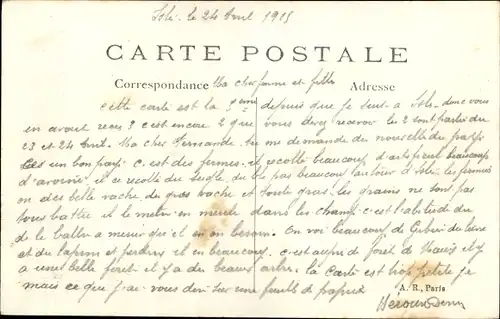 Isle. le 24 Avril 1915
CARTE POSTALE
Correspondance Ma cher femme et fille Adresse
cette carte est la 5eme depuis que je suit a Isle donc vous
en avait reçes 3 c'est encore 2 que vous devez recevoir le 2 sont parties du
23 et 24 Avril. Ma cher Fernande. tu me demande du nouvelle du pays
c'est un bon pays c'est des fermes. il recolte beaucoup beaucoup
d'avoine. il ce recolte du Seigle, du Blé pas beaucoup les fermiers
on des belle vache du gros vache et toute gras. les grains ne son pas
tous battu il le mette en meule dans les champs c'est l'abitude du
de le battre a mesure qu'il en on besoin. On voi beaucoup de Gibier du lievre
et du lapins et perdrix il en beaucoup. c'est auprès de foret de il y
a une belle foret il y a du beaux arbre. la Carte est trop petite je
mais ce que j'ai vous dire sur une feuille de papier
A. R., Paris